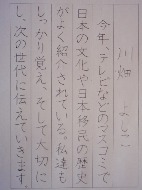 川畑 よし子
今年、テレビなどのマスコミで
日本の文化や日本移民の歴史
がよく紹介されている。私達も
しっかり覚え、そして大切に
し、次の世代に伝えていきます